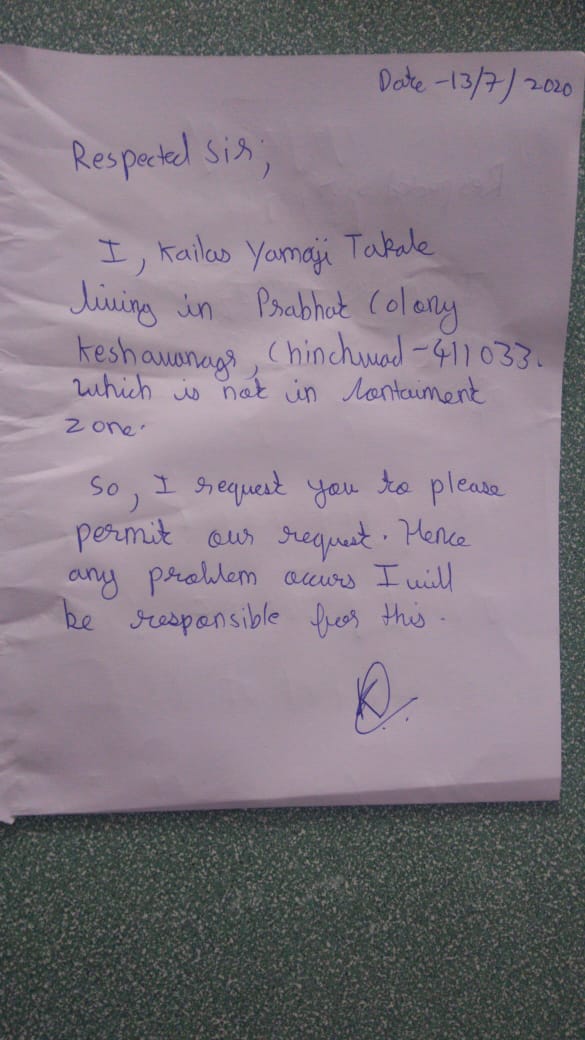 Date -13/7/2020
Respected Sir,
I, Kailas Yamaji Takale
living in Prabhat Colony
Keshavanagr, Chinchwad-411033.
which is not in Contaiment
zone.
So, I request you to please
permit our request. Hence
any problem occurs I will
be responsible for this.